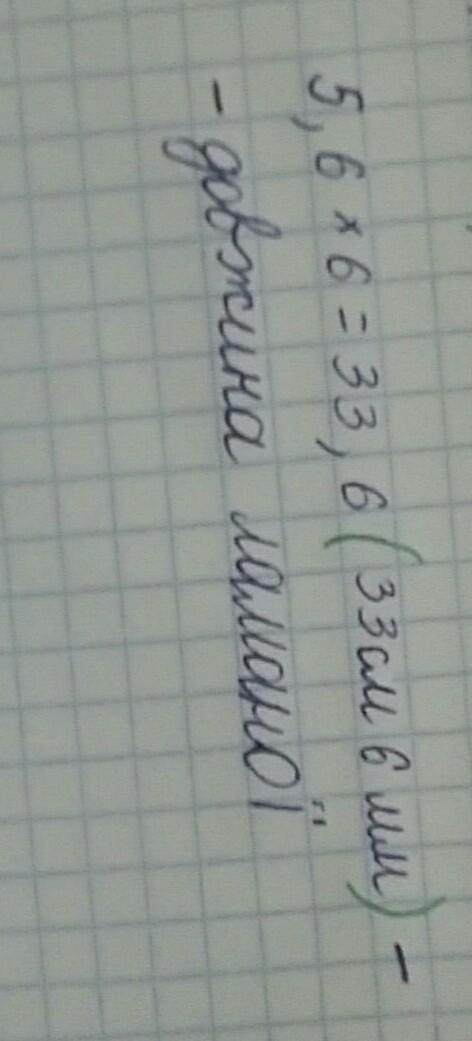 5,6 × 6 = 33,6 (33см 6 мм) –
– довжина ламаної